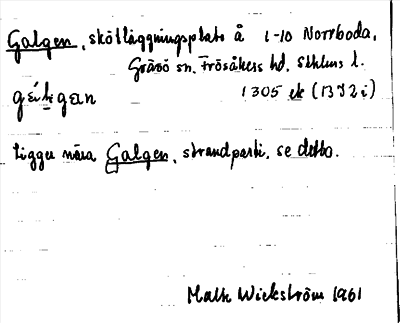 Galgen, skötläggningsplats å 1-10 Norrboda,
Gräsö sn. Frösåkers hd. Sthlms l.
1305 ek (1392 i)
Ligger nära Galgen, strandparti, se detto.
Math Wickström 1961